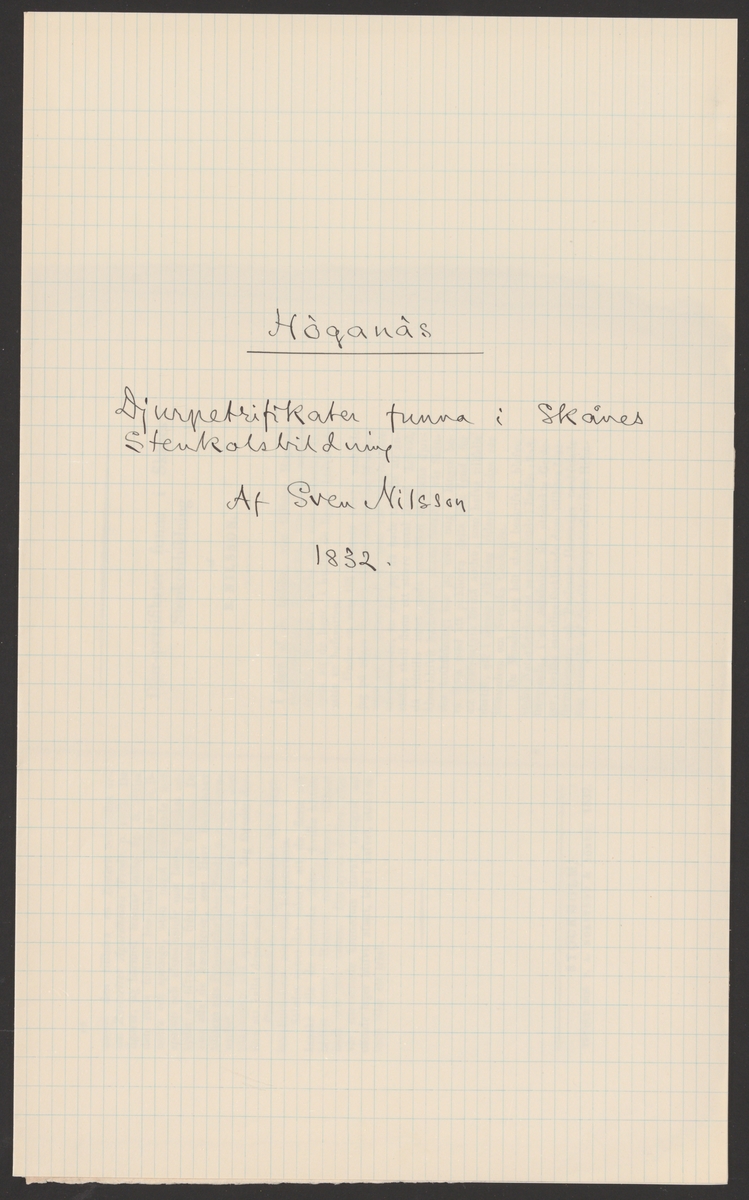 Höganäs
Djurpetrifikater funna i Skånes
Stenkolsbildning
Af Sven Nilsson
1832.